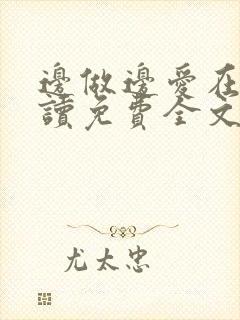 邊做邊愛在
讀免費全文
尤太忠